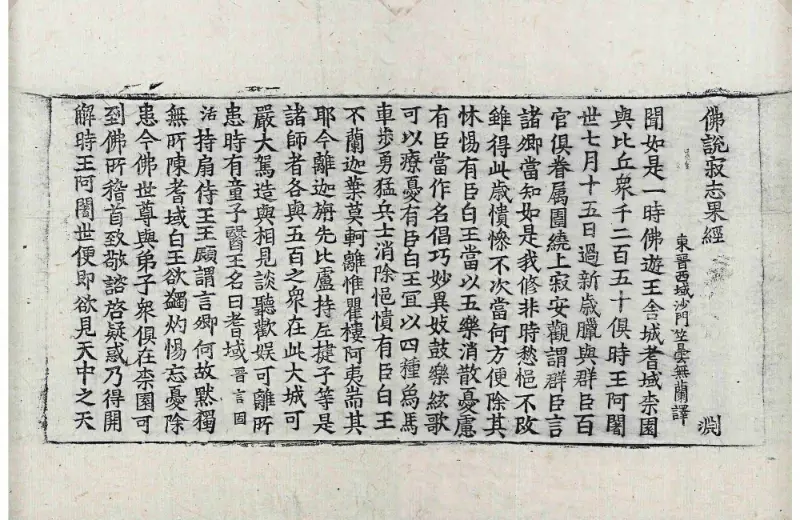 佛說寂志果經 淵
東晉西域沙門竺曇無蘭譯
聞如是一時佛遊王舍城耆域柰園
與比丘衆千二百五十俱時王阿闍
世七月十五日過新歲臘與群臣百
官俱眷屬圍繞上寂安觀謂群臣言
諸卿當知如是我修非時愁悒不改
雖得此歲憒憏不次當何方便除其
怵惕有臣白王當以五樂消散憂慮
有臣當作名倡巧妙異妓鼓樂絃歌
可以療憂有臣白王宜以四種為馬
車步勇猛兵士消除悒憒有臣白王
不蘭迦葉莫軻離惟瞿樓阿夷耑其
耶今離迦旃先比盧持尼揵子等是
諸師者各與五百之衆在此大城可
嚴大駕造與相見談聽歡娛可離所
患時有童子醫王名曰耆域晉言固
活持扇侍王王顧謂言卿何故默獨
無所陳耆域白王欲蠲灼惕忘憂除
患今佛世尊與弟子衆俱在柰園可
到佛所稽首致敬諮啓疑惑乃得開
解時王阿闍世便即欲見天中之天